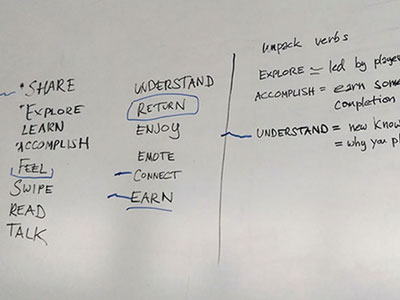 • SHARE
• EXPLORE
LEARN
• ACCOMPLISH
FEEL
SWIPE
READ
TALK
UNDERSTAND
RETURN
ENJOY
EMOTE
CONNECT
EARN
unpack verbs
EXPLORE = led by
ACCOMPLISH = earn
completion
UNDERSTAND = new
= why you